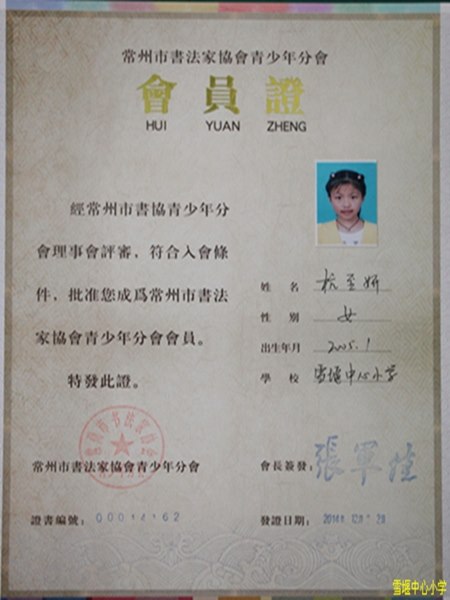 常州市書法家協會青少年分會
會員證
HUI YUAN ZHENG
經常州市書協青少年分
會理事會評審，符合入會條
件，批准您成爲常州市書法
家協會青少年分會會員。
特發此證。
姓 名 杭至妍
性 别 女
出生年月 2005.1
學 校 雪堰中心小学
常州市書法家協會青少年分會
會長簽發：張軍
證書編號：
發證日期：
雪堰中心小学